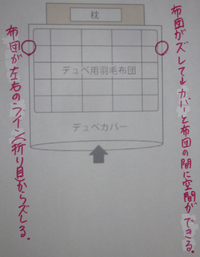 枕
布団がズレて↓カバーと布団の間に空間ができる。
デュベ用羽毛布団
デュベカバー
布団が左右のライン(折り目)からズレる。